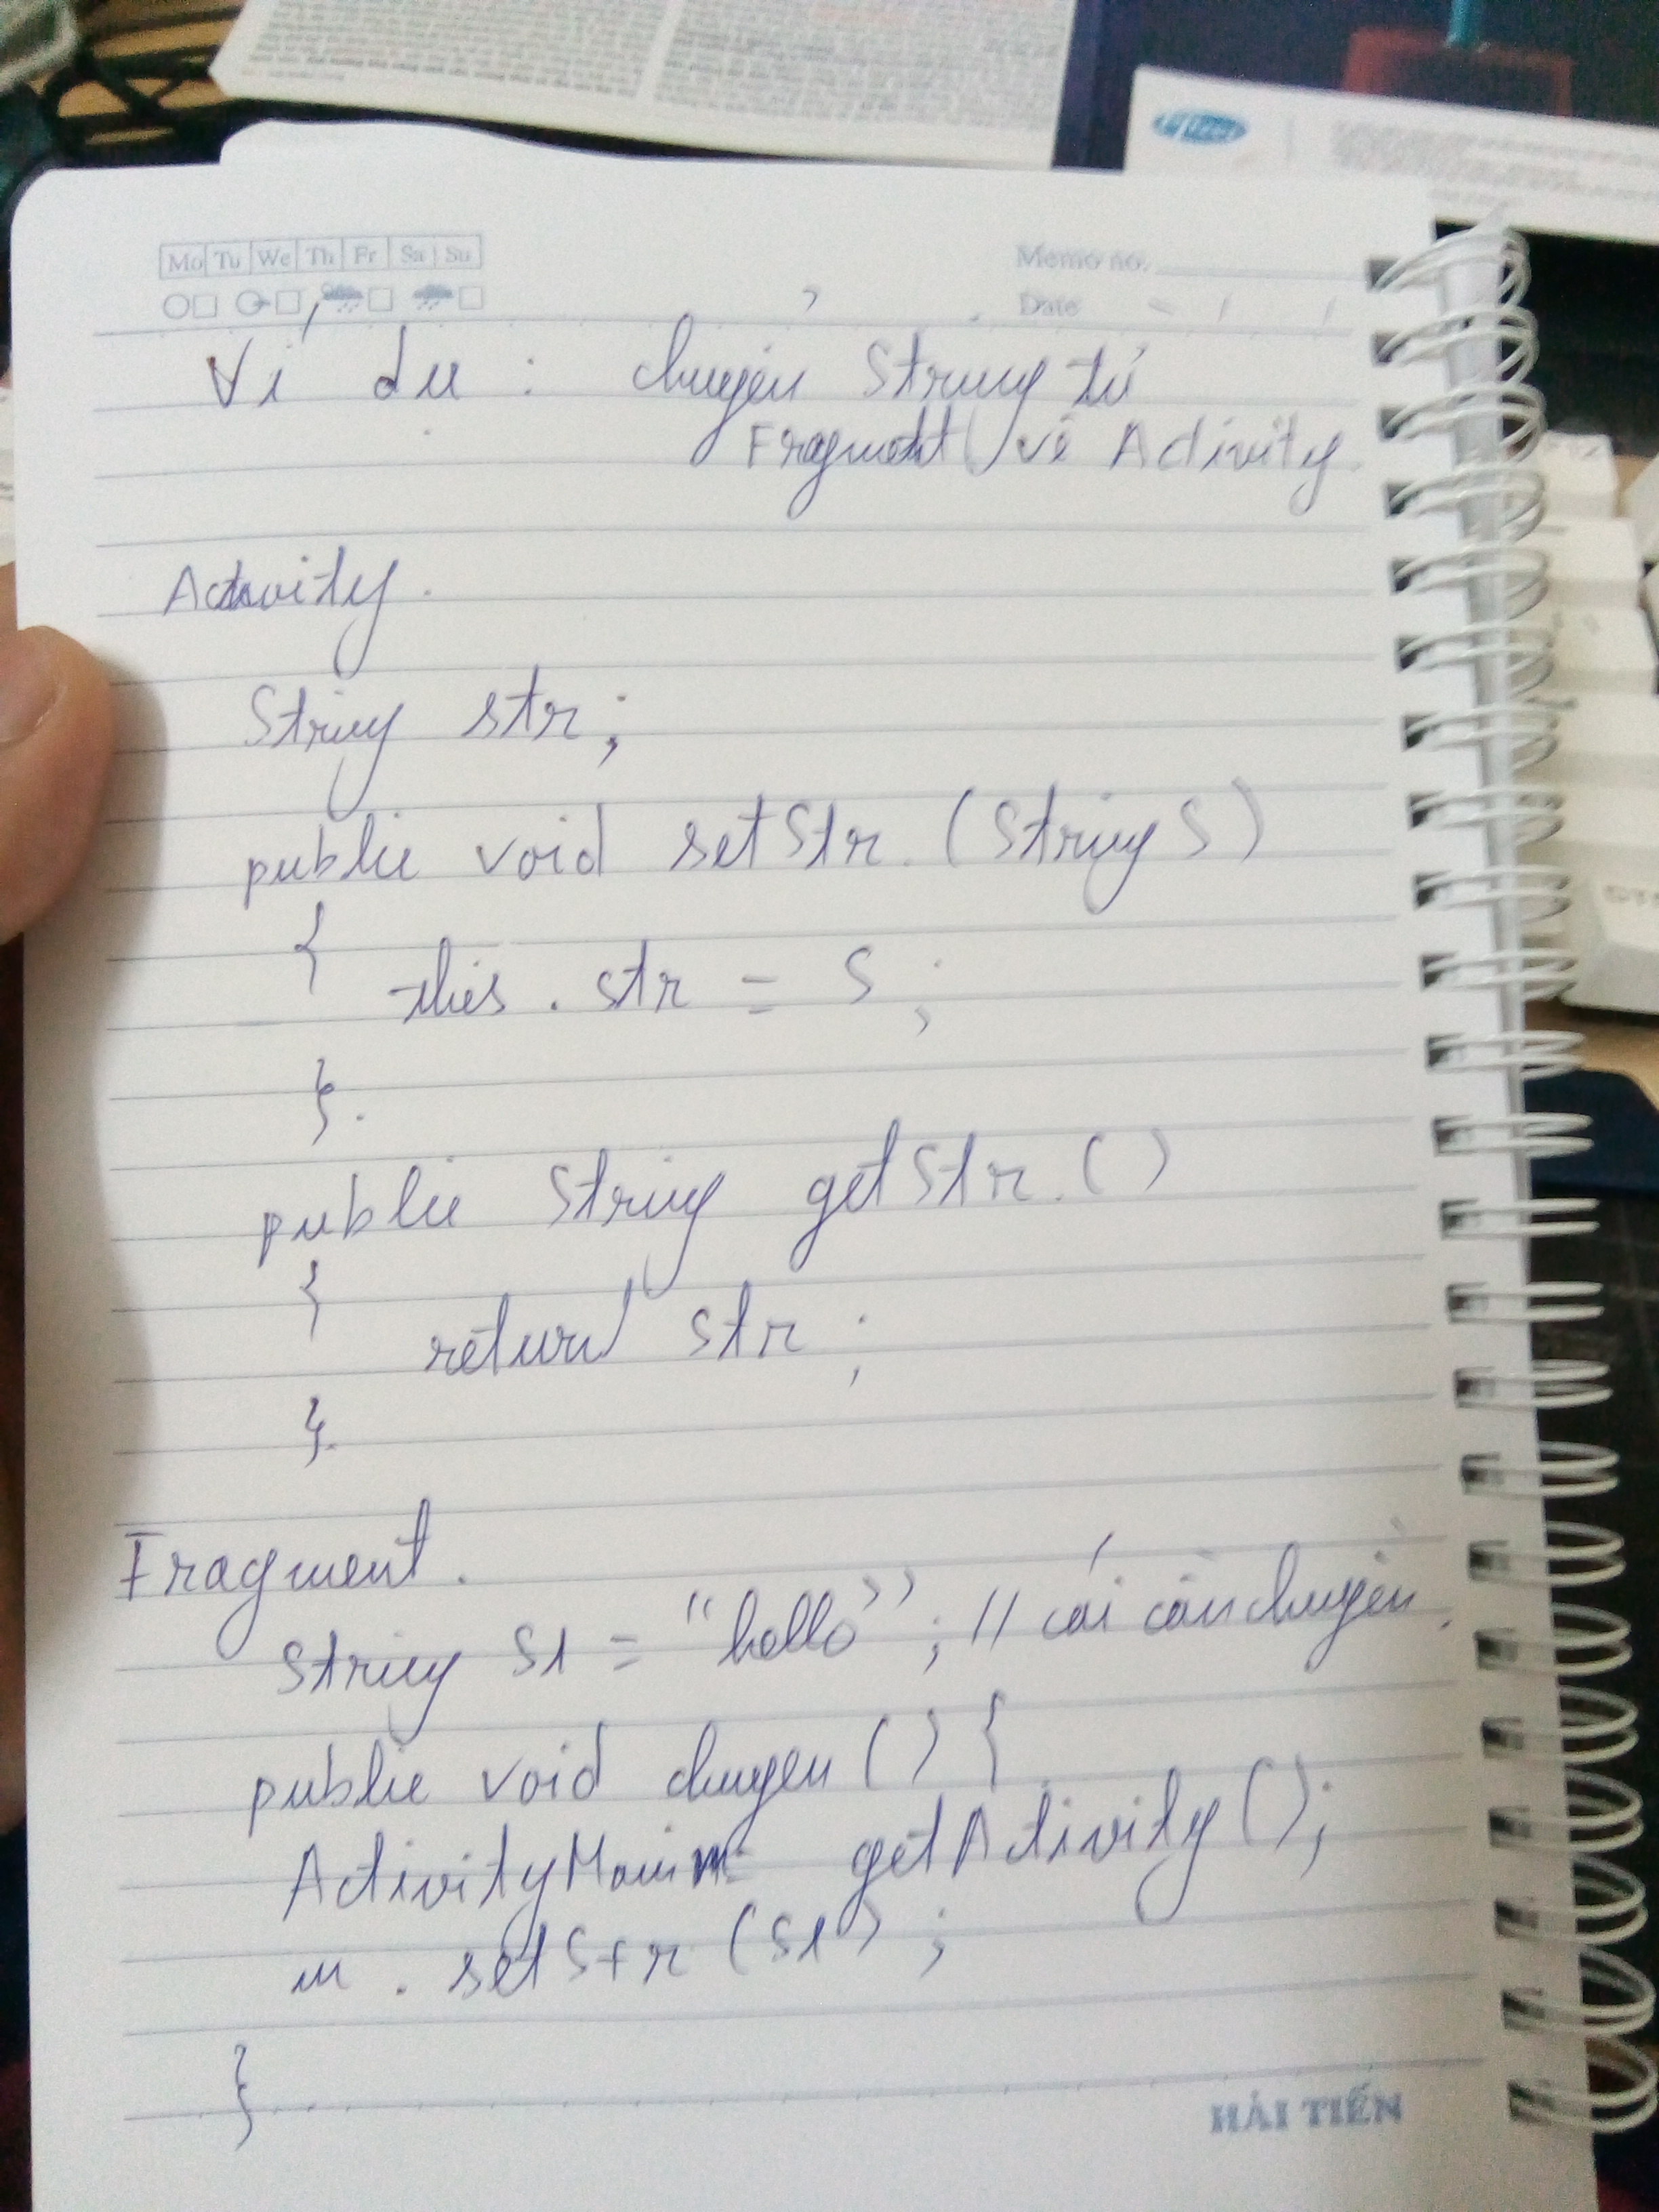 Mo Tu We Th Fr Sa Su
Memo no.
Date / /
Ví dụ : chuyển String từ
Fragment về Activity.
Activity.
String str;
public void setStr. (String S)
{
this . str = S ;
}.
public String getStr. ()
{
return str ;
}.
Fragment.
String S1 = "hello" ; // cái cần chuyển.
public void chuyen () {
ActivityMain m = getActivity();
m . setStr (S1) ;
}
HẢI TIẾN